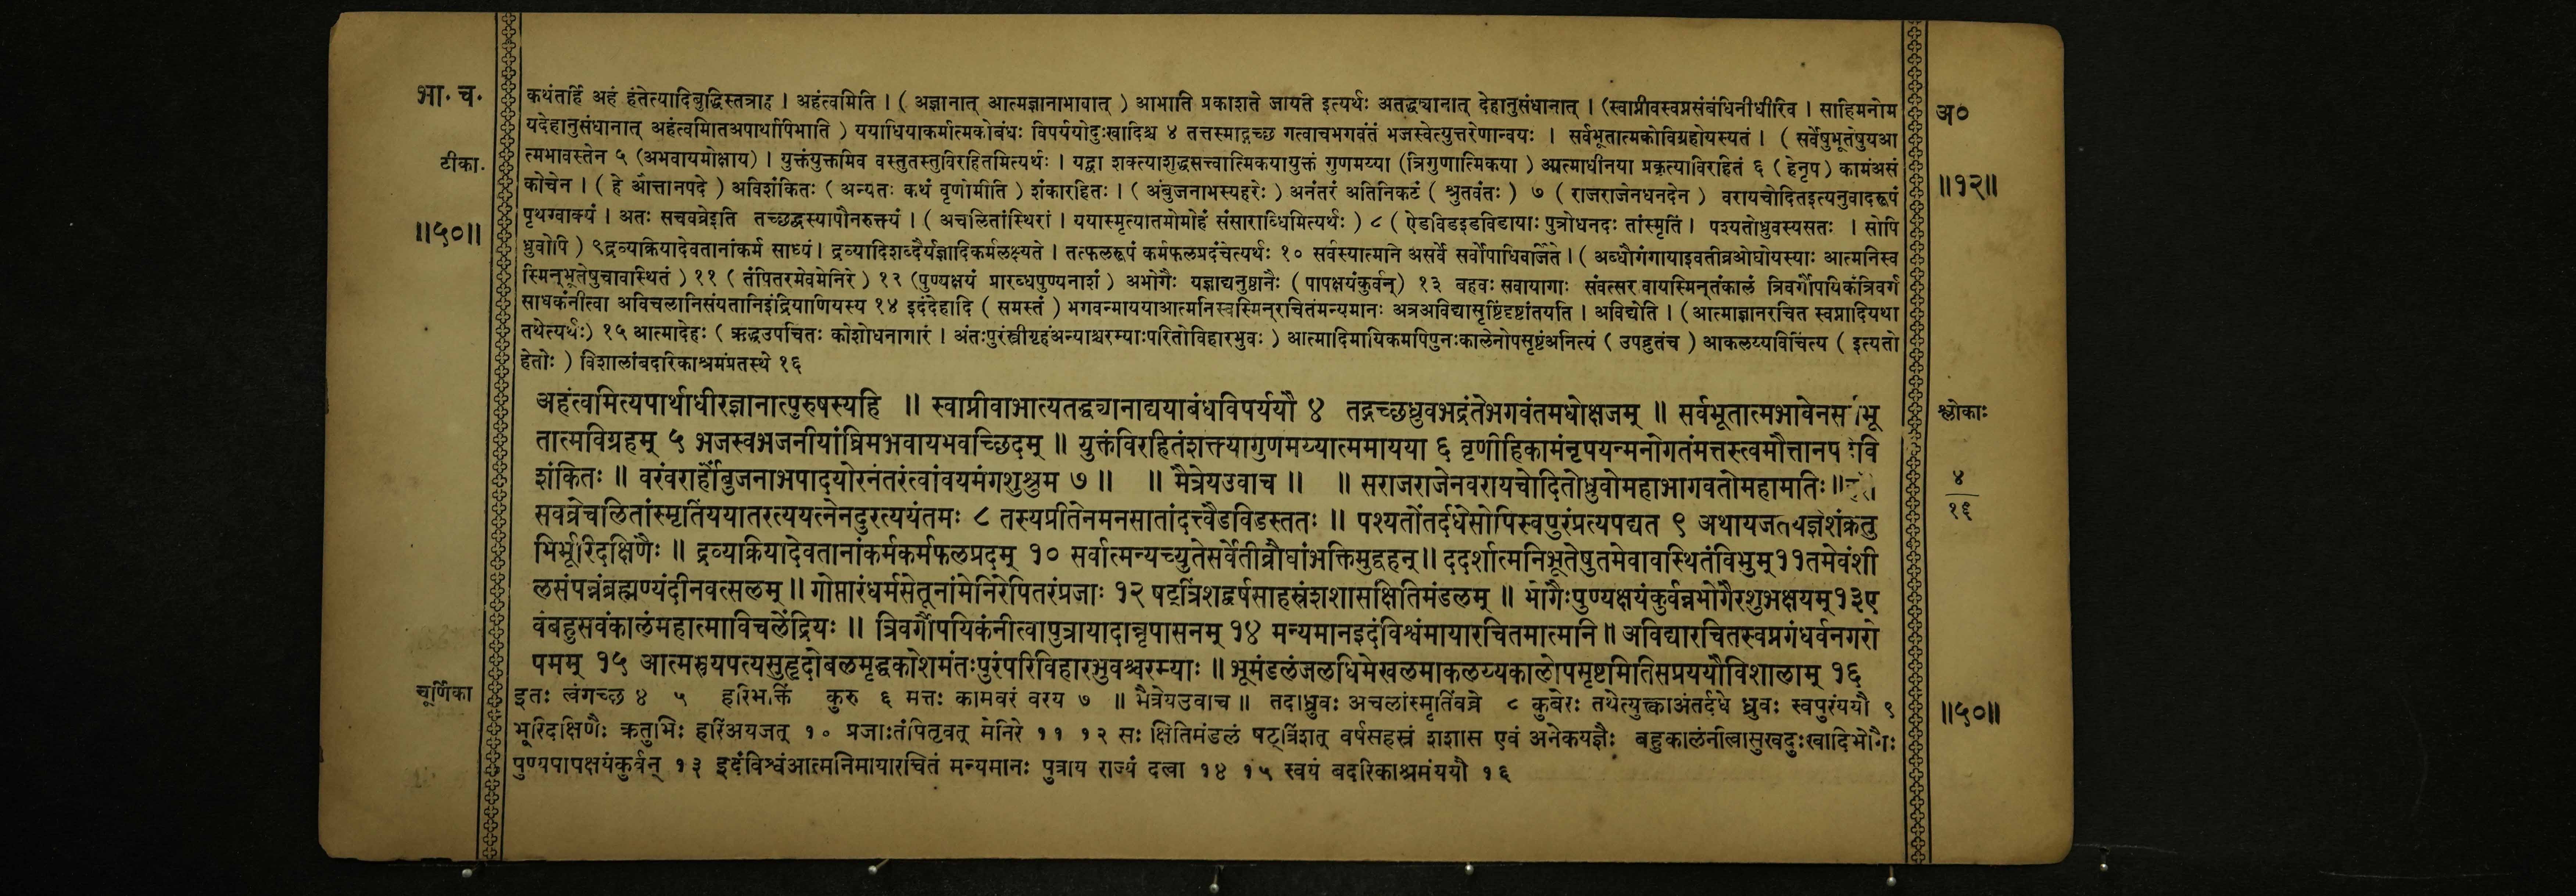 भा. च.
टीका.
॥५०॥
कथंतर्हि अहं हंतेत्यादिबुद्धिस्तत्राह । अहंत्वमिति । ( अज्ञानात् आत्मज्ञानाभावात् ) आभाति प्रकाशते जायते इत्यर्थः अतद्ध्यानात् देहानुसंधानात् । (स्वाप्नीवस्वप्नसंबंधिनीधीरिव । साहिमनोम
यदेहानुसंधानात् अहंत्वमितिअपार्थापिभाति ) ययाधियाकर्मात्मकोबंधः विपर्ययोदुःखादिश्च ४ तत्तस्माद्गच्छ गत्वाचभगवंतं भजस्वेत्युत्तरेणान्वयः । सर्वभूतात्मकोविग्रहोयस्यतं । ( सर्वेषुभूतेषुयआ
त्मभावस्तेन ५ (अभवायमोक्षाय) । युक्तंयुक्तमिव वस्तुतस्तुविरहितमित्यर्थः । यद्वा शक्त्याशुद्धसत्त्वात्मिकयायुक्तं गुणमय्या (त्रिगुणात्मिकया ) आत्माधीनया प्रकृत्याविरहितं ६ ( हेनृप) कामंअसं
कोचेन । ( हे औत्तानपदे ) अविशंकितः ( अन्यतः कथं वृणोमीति ) शंकारहितः । ( अंबुजनाभस्यहरेः ) अनंतरं अतिनिकटं ( श्रुतवंतः ) ७ ( राजराजेनधनदेन ) वरायचोदितइत्यनुवादरूपं
पृथग्वाक्यं । अतः सचवव्रेइति तच्छब्दस्यापौनरुक्त्यं । ( अचलितांस्थिरां । ययास्मृत्यातमोमोहं संसाराब्धिमित्यर्थः ) ८ ( ऐडविडइडविडायाः पुत्रोधनदः तांस्मृतिं । पश्यतोध्रुवस्यसतः । सोपि
ध्रुवोपि ) ९द्रव्यक्रियादेवतानांकर्म साध्यं। द्रव्यादिशब्दैर्यज्ञादिकर्मलक्ष्यते । तत्फलरूपं कर्मफलप्रदंचेत्यर्थः १० सर्वस्यात्मनि असर्वे सर्वोपाधिवर्जिते । ( अब्धौगंगायाइवतीव्रओघोयस्याः आत्मनिस्व
स्मिन्भूतेषुचावस्थितं ) ११ ( तंपितरमेवमेनिरे ) १२ (पुण्यक्षयं प्रारब्धपुण्यनाशं ) अभोगैः यज्ञाद्यनुष्ठानैः ( पापक्षयंकुर्वन्) १३ बहवः सवायागाः संवत्सर वायस्मिन्तंकालं त्रिवर्गौपयिकंत्रिवर्ग
साधकंनीत्वा अविचलानिसंयतानिइंद्रियाणियस्य १४ इदंदेहादि ( समस्तं ) भगवन्माययाआत्मनिस्वस्मिन्रचितंमन्यमानः अत्रअविद्यासृष्टिंदृष्टांतयति । अविद्येति । (आत्माज्ञानरचित स्वप्नादियथा
तथेत्यर्थः) १५ आत्मादेहः ( ऋद्धउपचितः कोशोधनागारं । अंतःपुरंस्त्रीगृहंअन्याश्चरम्याःपरितोविहारभुवः ) आत्मादिमायिकमपिपुनःकालेनोपसृष्टंअनित्यं ( उपद्रुतंच ) आकलय्यविचिंत्य ( इत्यतो
हेतोः ) विशालांबदरिकाश्रमंप्रतस्थे १६
अहंत्वमित्यपार्थाधीरज्ञानात्पुरुषस्यहि ॥ स्वाप्नीवाभात्यतद्ध्यानाद्ययाबंधविपर्ययौ ४ तद्गच्छध्रुवभद्रंतेभगवंतमधोक्षजम् ॥ सर्वभूतात्मभावेनस भू
तात्मविग्रहम् ५ भजस्वभजनीयांघ्रिमभवायभवच्छिदम् ॥ युक्तंविरहितंशक्त्यागुणमय्यात्ममायया ६ वृणीहिकामंनृपयन्मनोगतंमत्तस्त्वमौत्तानप वि
शंकितः ॥ वरंवरार्होंबुजनाभपादयोरनंतरंत्वांवयमंगशुश्रुम ७ ॥ ॥ मैत्रेयउवाच ॥ ॥ सराजराजेनवरायचोदितोध्रुवोमहाभागवतोमहामतिः॥
सवव्रेचलितांस्मृतिंययातरत्ययत्नेनदुरत्ययंतमः ८ तस्यप्रीतेनमनसातांदत्त्वैडविडस्ततः ॥ पश्यतोंतर्दधेसोपिस्वपुरंप्रत्यपद्यत ९ अथायजतयज्ञेशंक्रतु
भिर्भूरिदक्षिणैः ॥ द्रव्यक्रियादेवतानांकर्मकर्मफलप्रदम् १० सर्वात्मन्यच्युतेसर्वेतीव्रौघांभक्तिमुद्वहन्॥ ददर्शात्मनिभूतेषुतमेवावस्थितंविभुम्११तमेवंशी
लसंपन्नंब्रह्मण्यंदीनवत्सलम् ॥ गोप्तारंधर्मसेतूनांमेनिरेपितरंप्रजाः १२ षट्त्रिंशद्वर्षसाहस्रंशशासक्षितिमंडलम् ॥ भोगैःपुण्यक्षयंकुर्वन्नभोगैरशुभक्षयम्१३ए
वंबहुसवंकालंमहात्माविचलेंद्रियः ॥ त्रिवर्गौपयिकंनीत्वापुत्रायादान्नृपासनम् १४ मन्यमानइदंविश्वंमायारचितमात्मनि॥ अविद्यारचितस्वप्नगंधर्वनगरो
पमम् १५ आत्मस्त्र्यपत्यसुहृदोबलमृद्धकोशमंतःपुरंपरिविहारभुवश्चरम्याः ॥ भूमंडलंजलधिमेखलमाकलय्यकालोपसृष्टमितिसप्रययौविशालाम् १६
चूर्णिका
इतः त्वंगच्छ ४ ५ हरिभक्तिं कुरु ६ मत्तः कामवरं वरय ७ ॥ मैत्रेयउवाच ॥ तदाध्रुवः अचलांस्मृतिंवव्रे ८ कुबेरः तथेत्युक्त्वाअंतर्दधे ध्रुवः स्वपुरंययौ ९
भूरिदक्षिणैः क्रतुभिः हरिंअयजत् १० प्रजाःतंपितृवत् मेनिरे ११ १२ सः क्षितिमंडलं षट्त्रिंशत् वर्षसहस्रं शशास एवं अनेकयज्ञैः बहुकालंनीत्वासुखदुःखादिभोगैः
पुण्यपापक्षयंकुर्वन् १३ इदंविश्वंआत्मनिमायारचितं मन्यमानः पुत्राय राज्यं दत्वा १४ १५ स्वयं बदरिकाश्रमंययौ १६
अ०
॥१२॥
श्लोकाः
४
१६
॥५०॥